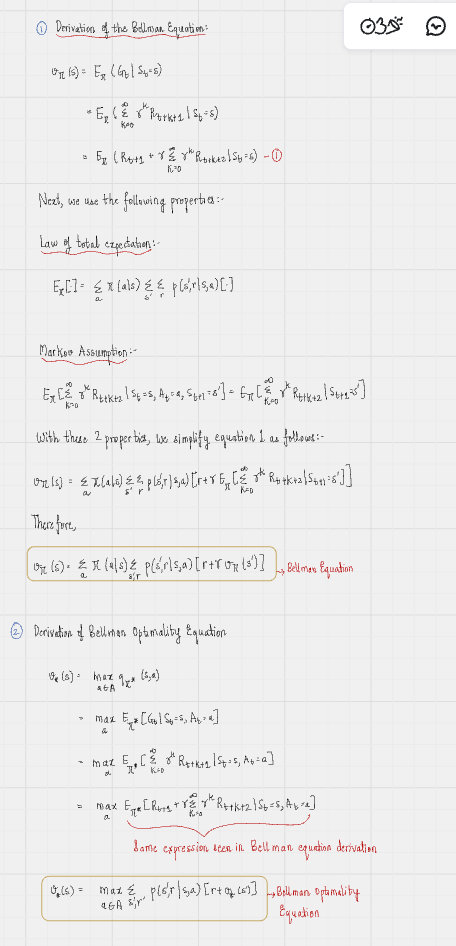 ① Derivation of the Bellman Equation:
v_π(s) = E_π (G_t | S_t=s)
= E_π ( Σ_{k=0}^∞ γ^k R_{t+k+1} | S_t=s)
= E_π (R_{t+1} + γ Σ_{k=0}^∞ γ^k R_{t+k+2} | S_t=s) - ①
Next, we use the following properties:-
Law of total expectation:-
E_π[·] = Σ_a π(a|s) Σ_{s'} Σ_r p(s',r|s,a)[·]
Markov Assumption:-
E_π[ Σ_{k=0}^∞ γ^k R_{t+k+2} | S_t=s, A_t=a, S_{t+1}=s'] = E_π[ Σ_{k=0}^∞ γ^k R_{t+k+2} | S_{t+1}=s']
With these 2 properties, we simplify equation 1 as follows:-
v_π(s) = Σ_a π(a|s) Σ_{s'} Σ_r p(s',r|s,a)[r+γ E_π[ Σ_{k=0}^∞ γ^k R_{t+k+2} | S_{t+1}=s']]
Therefore,
v_π(s) = Σ_a π(a|s) Σ_{s',r} p(s',r|s,a)[r+γ v_π(s')] → Bellman Equation
② Derivation of Bellman Optimality Equation
v_*(s) = max_{a∈A} q_{π*}(s,a)
= max_a E_{π*}[G_t | S_t=s, A_t=a]
= max_a E_{π*}[ Σ_{k=0}^∞ γ^k R_{t+k+1} | S_t=s, A_t=a]
= max_a E_{π*}[R_{t+1} + γ Σ_{k=0}^∞ γ^k R_{t+k+2} | S_t=s, A_t=a]
Same expression seen in Bellman equation derivation
v_*(s) = max_{a∈A} Σ_{s',r'} p(s',r|s,a)[r+ v_*(s')] → Bellman Optimality
Equation